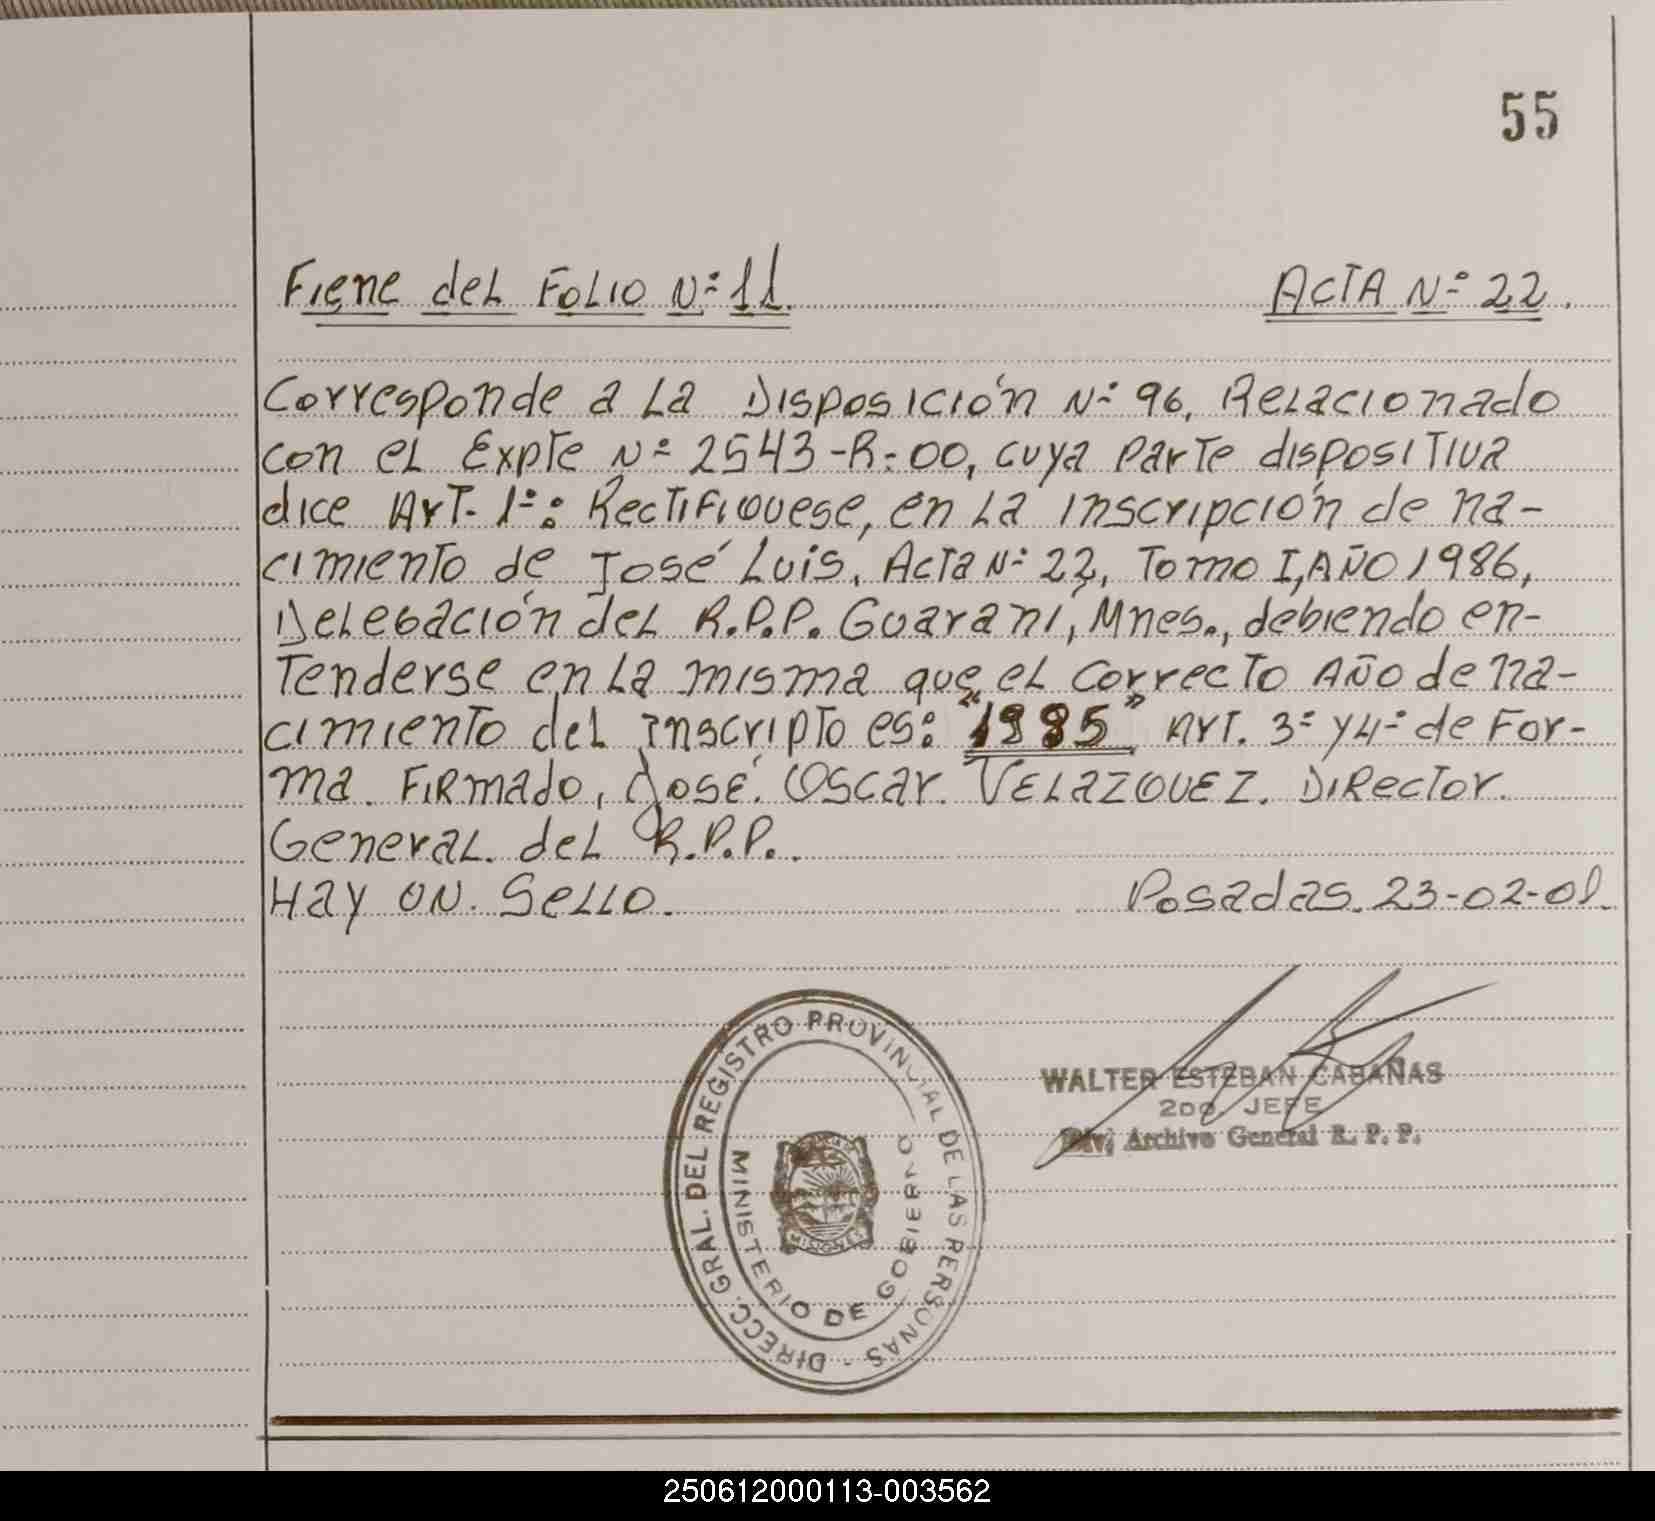 55
Fiene del Folio Nº 11. ACTA Nº 22.
Corresponde a La Disposición Nº 96, Relacionado
con el Expte Nº 2543-R-00, cuya parte dispositiva
dice Art. 1º: Rectifiquese, en La inscripción de na-
cimiento de José Luis, Acta Nº 22, Tomo I, AÑO 1986,
Delegación del R.P.P. Guaraní, Mnes., debiendo en-
tenderse en La misma que el correcto AÑO de na-
cimiento del inscripto es: "1985" Art. 3º y 4º de For-
ma. Firmado, José. Oscar. VELAZQUEZ. Director.
General. del R.P.P..
Hay un. Sello. Posadas. 23-02-01.
DIRECC. GRAL. DEL REGISTRO PROVINCIAL DE LAS PERSONAS -
MINISTERIO DE GOBIERNO
MISIONES
WALTER ESTEBAN CABAÑAS
2DO. JEFE
Div. Archivo General R. P. P.
250612000113-003562